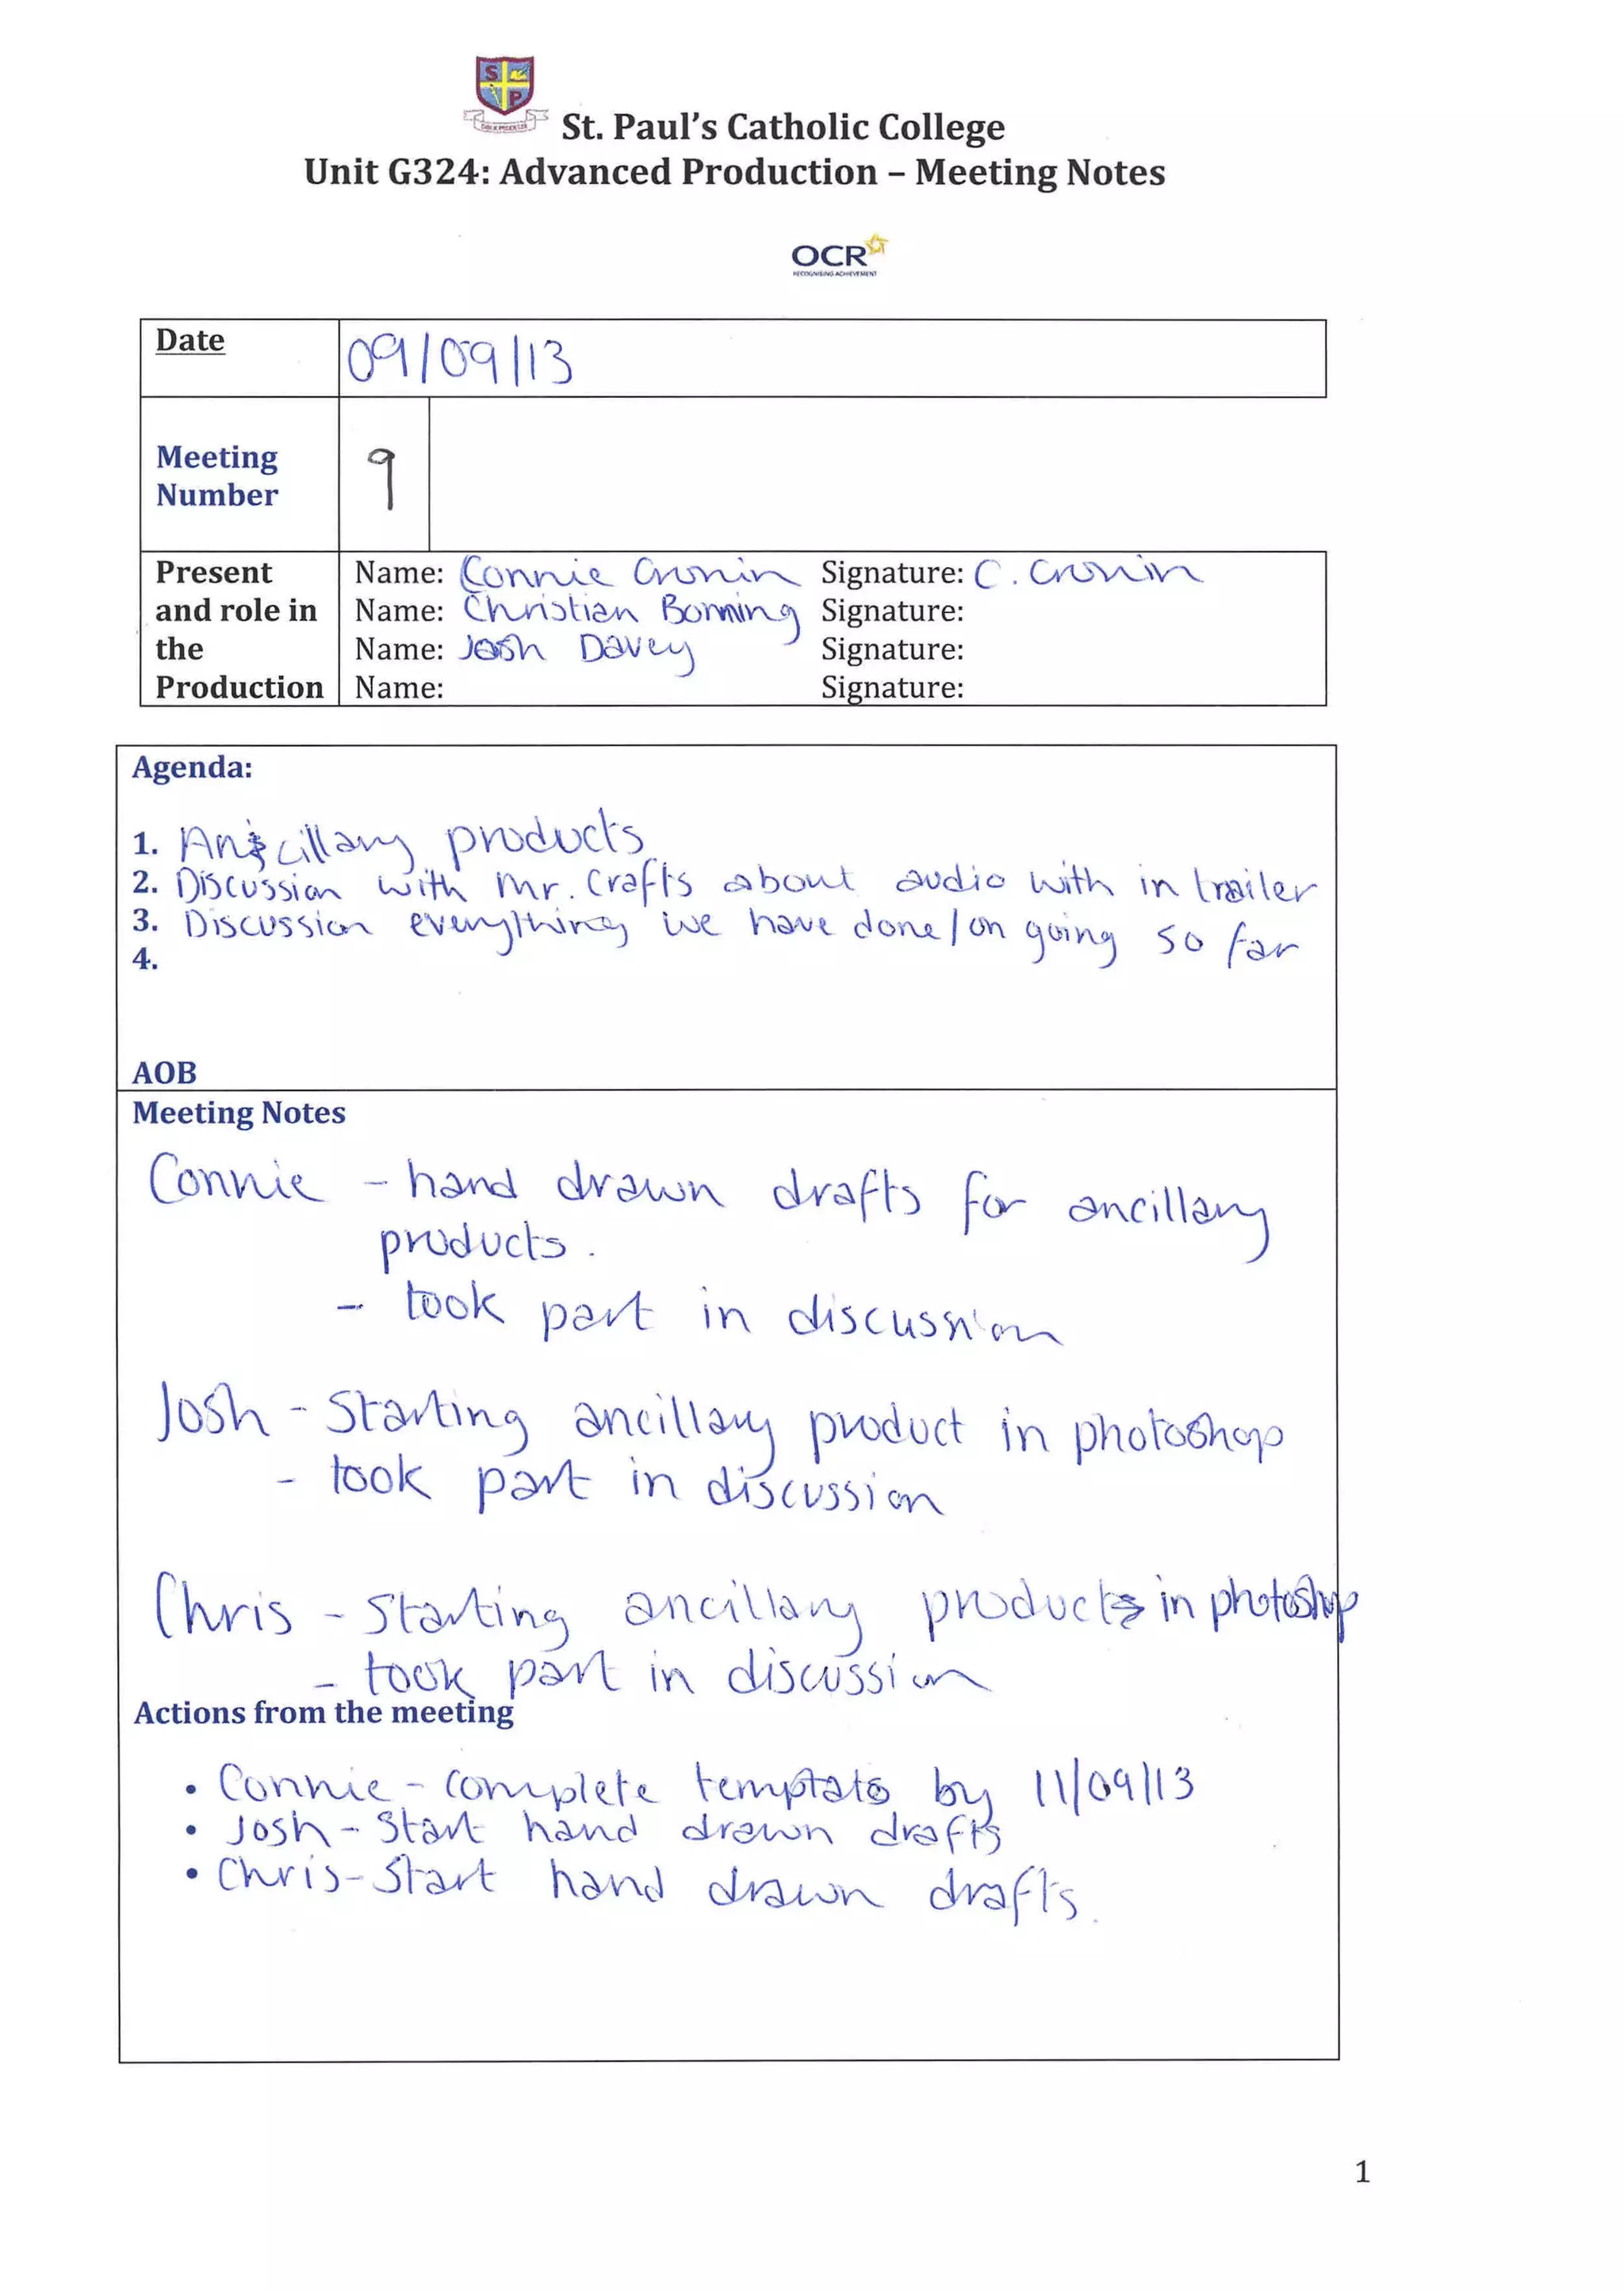 St. Paul's Catholic College
Unit G324: Advanced Production – Meeting Notes
OCR
RECOGNISING ACHIEVEMENT
Date 09/09/13
Meeting Number 9
Present and role in the Production
Name: Connie Cronin Signature: C. Cronin
Name: Christian Bonning Signature:
Name: Josh Davey Signature:
Name: Signature:
Agenda:
1. Ancillary products
2. Discussion with Mr. Crafts about audio with in trailer
3. Discussion everything we have done/on going so far
4.
AOB
Meeting Notes
Connie - hand drawn drafts for ancillary
products.
- took part in discussion
Josh - Starting ancillary product in photoshop
- took part in discussion
Chris - Starting ancillary products in photoshop
- took part in discussion
Actions from the meeting
• Connie - complete by 11/09/13
• Josh - Start hand drawn drafts
• Chris - Start hand drawn drafts.
1